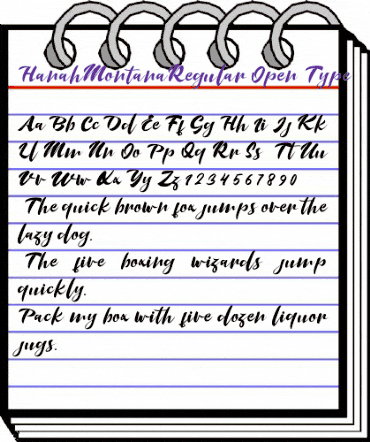 HanahMontanaRegular Open Type
Aa Bb Cc Dd Ee Ff Gg Hh Ii Jj Kk
Ll Mm Nn Oo Pp Qq Rr Ss Tt Uu
Vv Ww Xx Yy Zz 1 2 3 4 5 6 7 8 9 0
The quick brown fox jumps over the
lazy dog.
The five boxing wizards jump
quickly.
Pack my box with five dozen liquor
jugs.